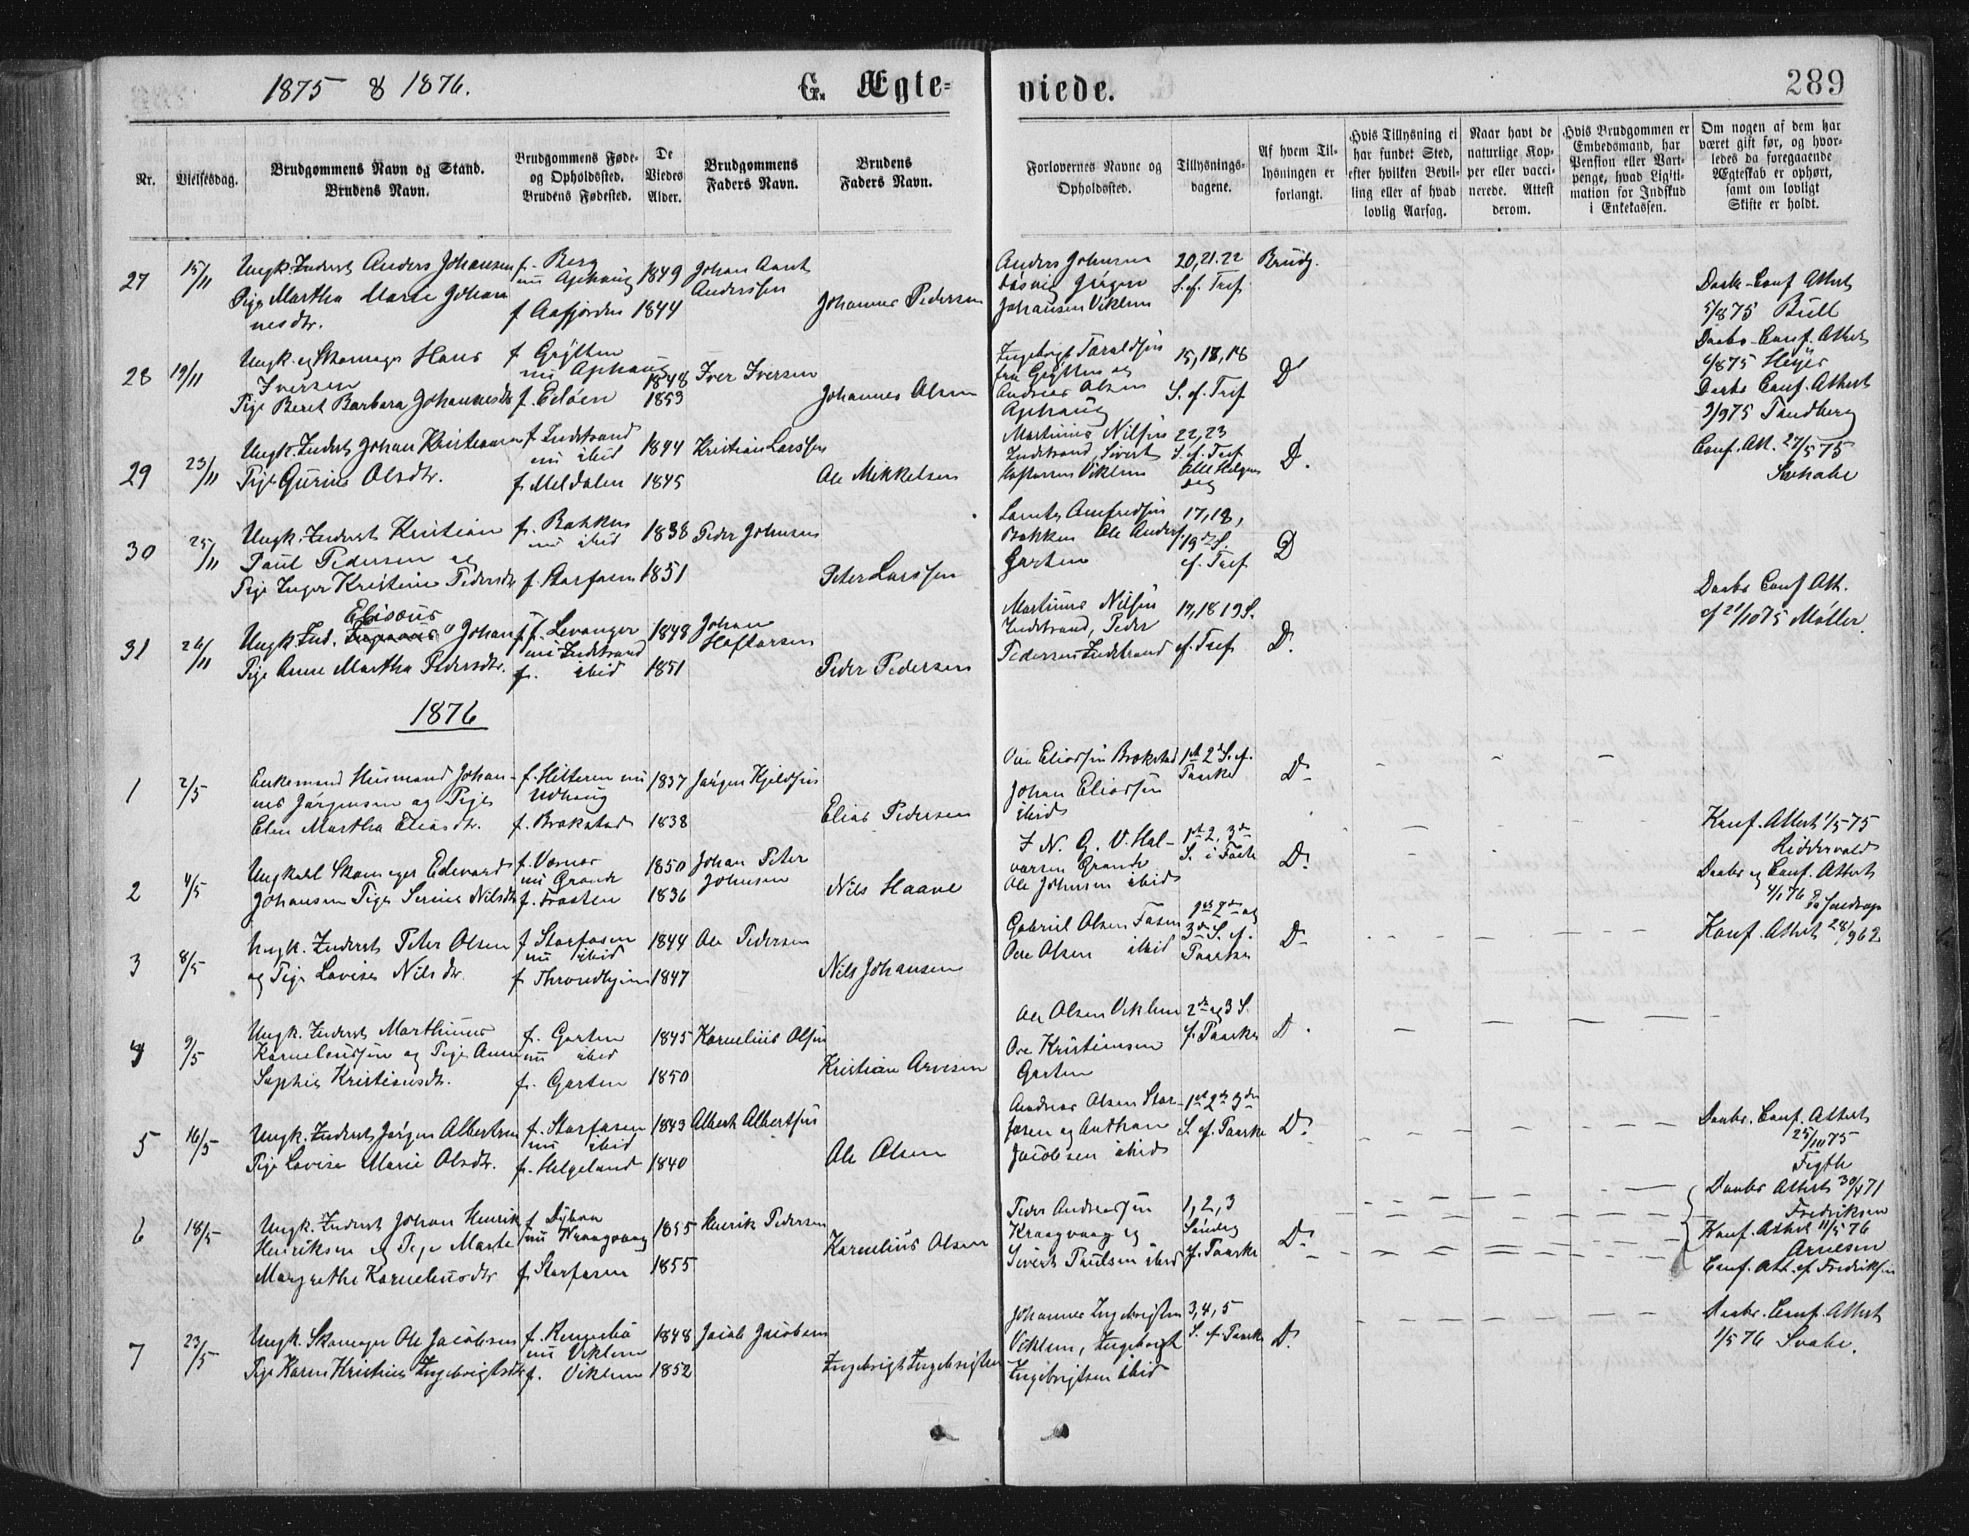 1875 & 1876.
G. Ægte=
viede.
289
Nr.
Vielsesdag.
Brudgommens Navn og Stand.
Brudens Navn.
Brudgommens Føde-
og Opholdssted.
Brudens Fødested.
De
Viedes
Alder.
Brudgommens
Faders Navn.
Brudens
Faders Navn.
Forlovernes Navne og
Opholdssted.
Tillysnings-
dagene.
Af hvem Til-
lysningen er
forlangt.
Hvis Tillysning ei
har fundet Sted,
efter hvilken Bevil-
ling eller af hvad
lovlig Aarsag.
Naar havt de
naturlige Kop-
per eller vacci-
nerede. Attest
derom.
Hvis Brudgommen er
Embedsmand, har
Pension eller Vart-
penge, hvad Legiti-
mation for Indskud
i Enkekassen.
Om nogen af dem har
været gift før, og hvor-
ledes da foregaaende
Ægteskab er ophørt,
samt om lovligt
Skifte er holdt.
27
15/11
Ungk. Inderst Anders Johansen
Pige Martha Marie Johan
nesdtr.
f. Berg
nu Ophaug
f Aafjorden
1849
1844
Johan Arnt
Anderssen
Johannes Pedersen
Anders Johnsen
Jørgen
Johansen Viklem
20, 21. 22
S. ef. Tref
Brudg.
Daabs-Conf Attest
5/875 Bull
28
19/11
Ungk. og Skomager Hans
Iversen
Pige Beret Barbara Johannesdtr
f Grytten
nu Ophaug
f. Edøen
1848
1853
Iver Iversen
Johannes Olsen
Ingebrigt Taraldsen
fra Grytten og
Andreas Olsen
Ophaug
15, 18, 18
S. ef. Tref
Do
Daabs-Conf. Attest
6/875 Heyer
Daabs Conf. Attest
9/975 Tandberg
29
23/11
Ungk. Inderst Johan Kristiansen
Pige Gurine Olsdtr.
f Indstrand
nu ibid
f. Meldalen
1844
1845
Kristian Larssen
Ole Mikkelsen
Martinus Nilsen
Indstrand, Sivert
Hoftorsen Viklem
22, 23
S. ef. Tref
Alle Helgens
Dag
D.
Conf. Att. 27/575
Svhabe
30
25/11
Ungk. Inderst Kristian
Paul Pedersen og
Pige Inger Kristine Pedersdtr
f. Bakken
nu ibid
f. Storfosen
1838
1851
Peder Johnsen
Peter Larssen
Lorents Arnfredsen
Bakken Ole Anders.
Garten
17, 18,
19de S.
ef. Tref
D
31
26/11
Elisæus
Ungk. Ind. Johan
Pige Anne Martha Pedersdtr.
f. Levanger
nu Indstrand
f. ibid
1848
1851
Johan
Hoftorsen
Peder Pedersen
Martinus Nilsen
Indstrand, Peder
Pedersen Indstrand
17, 18 19 S.
ef. Tref
D.
Daabs Conf Att.
af 21/1075 Møller.
1876
1
2/5
Enkemand Husmand Johan-
nes Jørgensen og Pige
Elen Martha Eliasdtr.
f. Hitteren nu
Udhaug
f. Brækstad
1837
1838
Jørgen Kjeldsen
Elias Pedersen
Ove Eliassen Brækstad
Johan Eliassen
ibid
1st 2 S. ef.
Paaske
D.
2
4/5
Ungkarl Skomager Edevard
Johansen Pige Serine Nilsdtr
f. Værnes
nu Grande
f. Frosten
1850
1836
Johan Peter
Johnsen
Nils Haave
I N. Q. V. Hal-
vorsen Grande
Ole Johnsen ibid
1st 2, 3de
S. i Faste
D.
Konf. Attest 1/575
Riddervold
Daabs og Conf. Attest
4/176
3
8/5
Ungk. Inderst Peter Olsen
og Pige Lovise Nilsdtr.
f Storfosen
nu ibid
f. Throndhjem
1844
1847
Ole Pedersen
Nils Johansen
Gabriel Olsen Fosen
Ove Olsen ibid
1st 2de og
3de S. ef.
Paaske
D.
Konf. Attest 28/962
4
9/5
Ungk. Inderst Marthinus
Korneliussen og Pige Anne
Sophie Kristiansdtr.
f. Garten
nu ibid
f. Garten
1845
1850
Kornelius Olsen
Kristian Arvesen
Ole Olsen Viklem
Ove Kristiansen
Garten
2de og 3 S.
ef. Paaske
D.
5
16/5
Ungk. Inderst Jørgen Albertsen
Pige Lovise Marie Olsdtr.
f. Storfosen
nu ibid
f. Helgeland
1843
1840
Albert Albertsen
Ole Olsen
Andreas Olsen Stor-
fosen og Anthon
Jacobsen ibid
1st 2de 3de
S. ef. Paaske
D.
Daabs. Conf. Attest
25/1075
Figth
6
18/5
Ungk. Inderst Johan Henrik
Henriksen og Pige Marte
Margrethe Korneliusdtr
f. Dybva
nu Kraagvaag
f. Storfosen
1855
1855
Henrik Pedersen
Kornelius Olsen
Peder Andreassen
Kraagvaag og
Sivert Paulsen ibid
1, 2, 3
Søndag
ef. Paaske
D.
Daabs Attest 30/471
Fredriksen
Konf. Attest 11/576
Arnesen
Conf. Att. af Fredriksen
7
23/5
Ungk. Skomager Ole Jacobsen
Pige Karen Kristine Ingebrigtsdtr
f. Rennebu
nu Viklem
f. Viklem
1848
1852
Jacob Jacobsen
Ingebrigt Ingebrigtsen
Johannes Ingebrigtsen
Viklem, Ingebrigt
Ingebrigtsen ibid
3, 4, 5
S. ef. Paaske
D.
Daabs. Conf. Attest
1/576 Svabe.